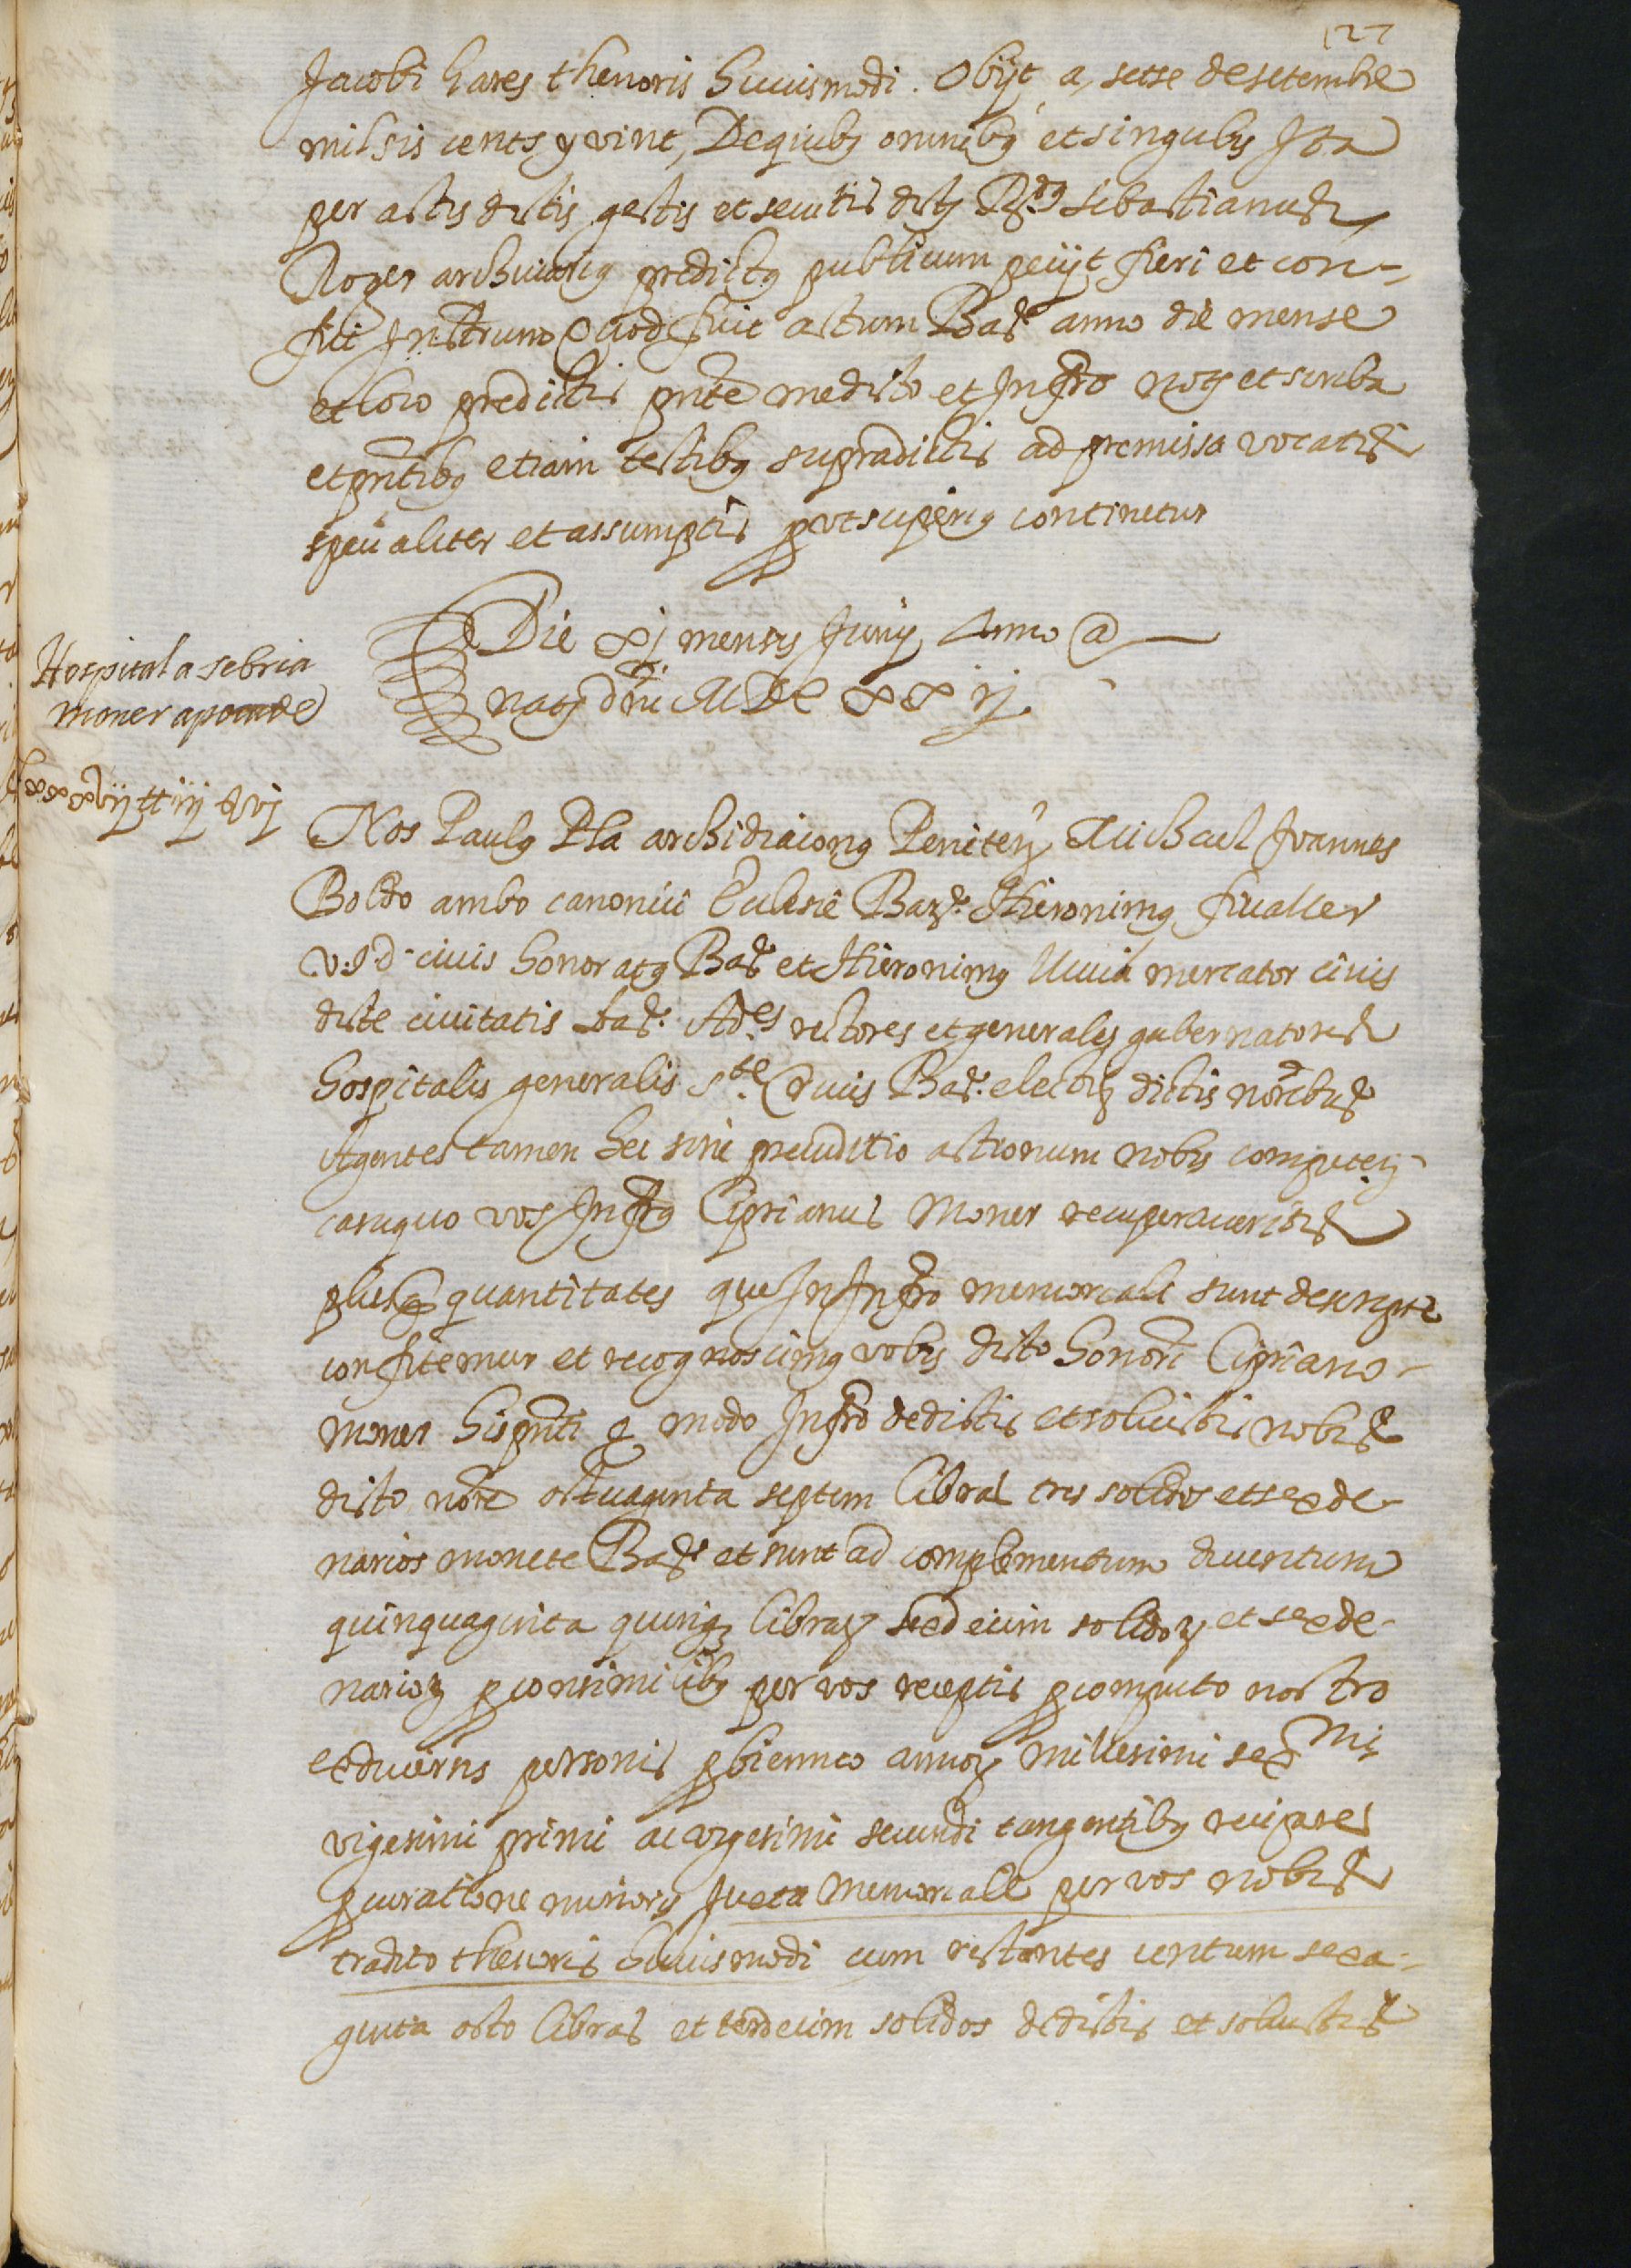 127
Jacobi hares thenoris huiusmodi. Obijt a, setse de setembre
mil sis cents y vint, De quibus omnibus et singulis Ita
per actis dictis gestis et secutis dictus R.dus Sebastianus
Roger archivarius predictus publicum petijt fieri et con-
fici Instrum Quod fuit actum Bar.e anno die mense
et loco predictis pnte me dicto et Infro noty et scriba
et pntibus etiam testibus supradictis ad premissa vocatis
specialiter et assumptis put superius continetur
Die xj mensis Junij Anno @
naty dni MDCxxij.
Hospital a sebria
moner apoca de
Lxxxvij ℔ iij s vj
Nos Paulus Pla archidiaconus Peniten Michael Joannes
Boldo ambo canonici Eclesie Bar.e Hieronimus fivaller
v.J.d. civis honoratus Bar.e et Hieronimus mercator civis
dicte civitatis bar.e Ad.es rectores et generales gubernatores
hospitalis generalis s.te Crucis Bar.e electi dictis noibus
Agentes tamen hec sine preiuditio actionum nobis competen
casu quo vos Infrus Ciprianus Moner recuperaveritis
plures quantitates que In Infro memoriali sunt descripte
confitemur et recognoscimus vobis dicto honori Cipriano
moner his pnti q modo Infro dedistis et solvistis nobis
dicto noie octuaginta septem libras tres solidos et sex de-
narios monete Bar.e et sunt ad complementum ducentum
quinquaginta quinq libras sexdecim solidor et sex de-
narior p consimilibus per vos receptis p computo nostro
ex diversis personis p biennio annor millesimi sex mi
vigesimi primi ac vigesimi secundi tangentibus recipare
p curatione minoris Juxta memoriale per vos nobis
tradito thenoris huiusmodi cum restantes centum sexa-
ginta octo libras et terdecim solidos dedistis et solvistis